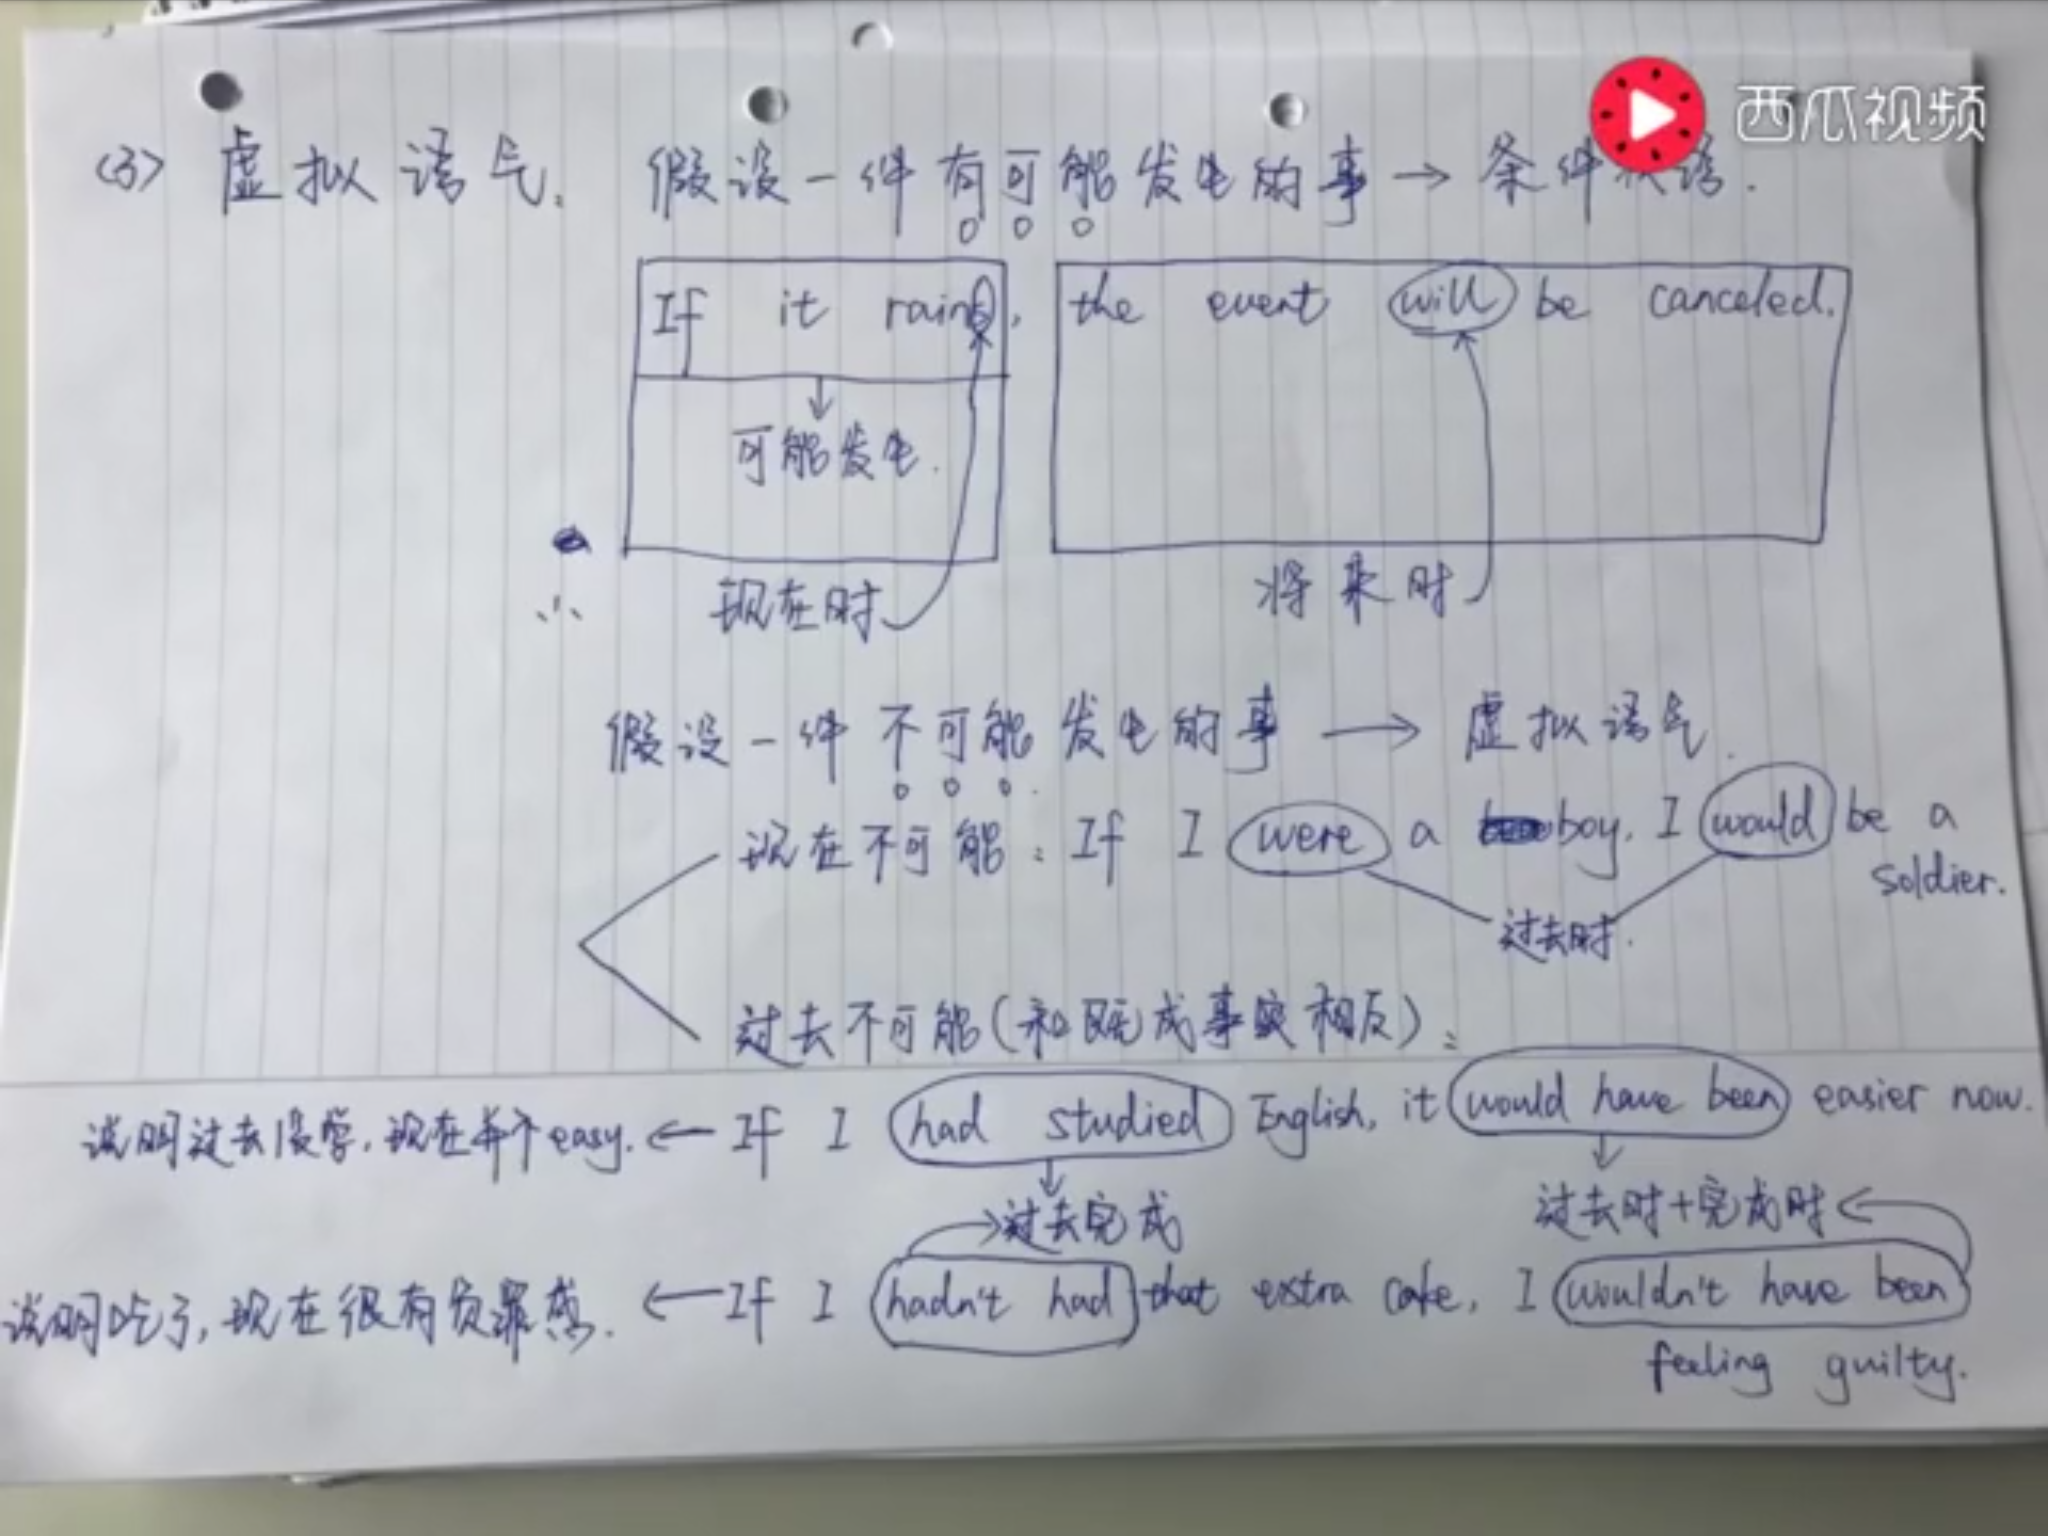 西瓜视频
(3) 虚拟语气: 假设一件有可能发生的事 → 条件状语.
If it rains, the event will be canceled.
可能发生.
现在时 将来时
假设一件不可能发生的事 → 虚拟语气.
现在不可能: If I were a boy, I would be a
soldier.
过去时.
过去不可能(和既成事实相反):
说明过去没学,现在并不easy. ← If I had studied English, it would have been easier now.
过去完成 过去时+完成时
说明吃了,现在很有负罪感. ← If I hadn't had that extra cake, I wouldn't have been
feeling guilty.